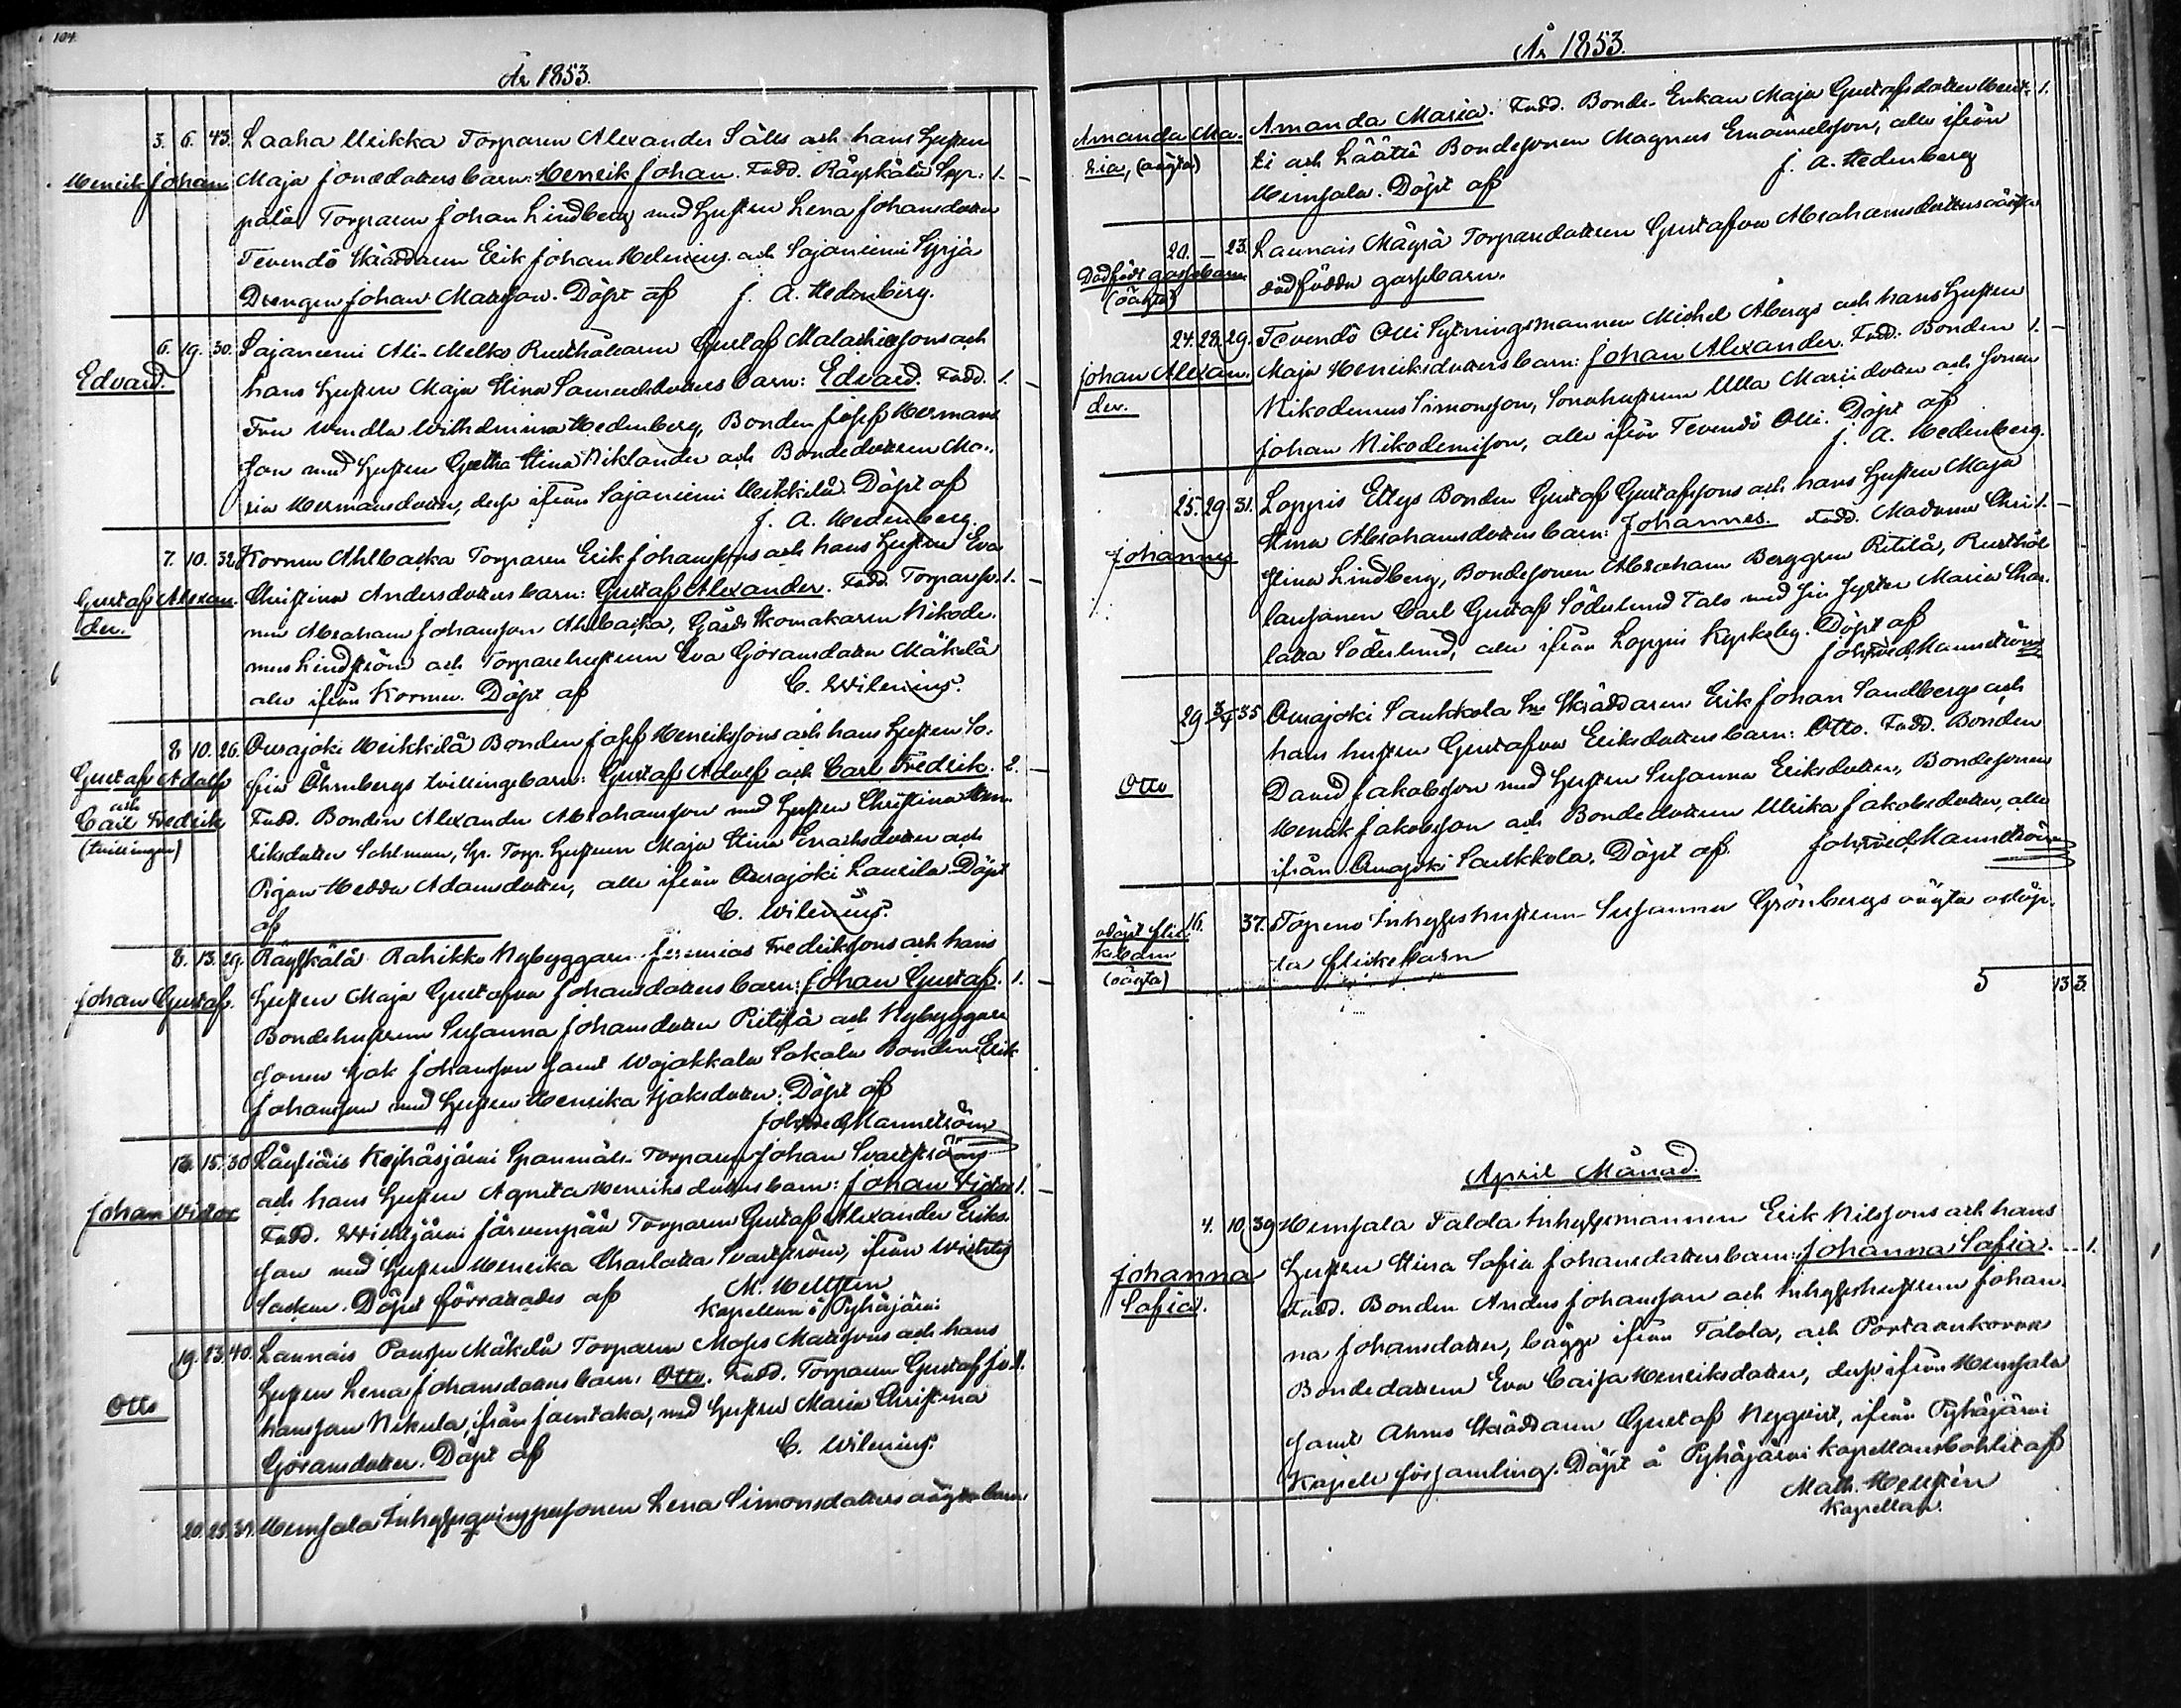 104.
År 1853.
3. 6. 43. Laaha Ueikka Torparen Alexander Sälls och hans hustru
Henrik Johan Maja Jonædotters barn: Henrik Johan. Fadd. Räyskälä 1.
Torparen Johan Lindberg med hustru Lena Johansdotter
Tevendö Skräddaren Erik Johan Helenius och Sajaniemi Syrjä
Drengen Johan Matsson. Döpt af J. A. Hedenberg.
6. 19. 30. Sajaniemi Ali-Melko Rusthållaren Gustaf Malachiessons och
Edvard. hans hustru Maja Stina Samuelsdotters barn: Edvard. Fadd. 1.
Fru Wendla Wilhelmina Hedenberg, Bonden Josef Hermans
son med hustru Gretha Stina Niklander och Bondedottren Ma-
ria Hermansdotter, desse ifrån Sajaniemi Heikkilä. Döpt af
J. A. Hedenberg.
7. 10. 32. Kormu Ahlbacka Torparen Erik Johanssons och hans hustru Eva
Gustaf Alexan- Christina Andersdotters barn: Gustaf Alexander. Fadd. Torpareso- 1.
der. nen Abraham Johansson Ahlbacka, Gårds Skomakaren Nikode-
mus Lindström och Torparehustrun Eva Göransdotter Mäkelä
alla ifrån Kormu. Döpt af C. Wilenius.
8 10. 26. Ourajoki Heikkilä Bonden Josef Henrikssons och hans hustru So-
Gustaf Adolf fia Öhrnbergs tvillingebarn: Gustaf Adolf och Carl Fredrik. 2.
och
Carl Fredrik Fadd. Bonden Alexander Abrahamsson med hustru Christina Hen-
(tvillingar) riksdotter Sahlman, Torp. hustrun Maja Stina Eriachsdotter och
Pigan Hedda Adamsdotter, alla ifrån Ourajoki Laurila. Döpt
af C. Wilenius.
8. 13. 29. Räyskälä Rahikko Nybyggaren Jeremias Fredrikssons och hans
Johan Gustaf. hustru Maja Gustafva Johansdotters barn: Johan Gustaf. 1.
Bondehustrun Susanna Johansdotter Pietilä och Nybyggare
sonen Isak Johansson samt Wojakkala Sakala Bonden Erik
Johansson med hustru Henrika Isaksdotter: Döpt af
Joh. Fred. Mannström
13. 15. 30 Läyliäis Keihäsjärvi Torparen Johan Svartströms
och hans hustru Agneta Henriksdotters barn: Johan Victor 1.
Johan Victor Fadd. Wichtjärvi Järvenpää Torparen Gustaf Alexander Eriks-
son med hustru Henrika Charlotta Svartström, ifrån Wichtis
Socken. Döpet förrattades af M. Hellsten
Kapellan i Pyhäjärvi
19. 23. 40. Launais Pausu Mäkelä Torparen Moses Matssons och hans
Otto hustru Lena Johansdotters barn: Otto. Fadd. Torparen Gustaf Jo- 1.
hansson Nikula, ifrån Joentaka, med hustru Maria Christina
Göransdotter. Döpt af C. Wilenius.
20. 25. 31. Hunsala Inhysesqvinspersonen Lena Simonsdotters oägta barn
År 1853.
Amanda Ma- Amanda Maria. Fadd. Bonde-Enkan Maja Gustafsdotter 1.
ria, (oägta) ti och Läätti Bondesonen Magnus Emanuelsson, alla ifrån
Hunsala. Döpt af J. A. Hedenberg
20. — 23. Launais Mäyrä Torparedottren Gustafva Abrahamsdotters oägta
Dödfödt gossebarn dödfödda gossebarn.
(oägta)
24. 28. 29. Tevendö Olli Sytningsmannen Michel Åbergs och hans hustru
Johan Alexan- Maja Henriksdotters barn: Johan Alexander. Fadd. Bonden 1.
der. Nikodemus Simonsson, Sonahustrun Ulla Mariidotter och sonen
Johan Nikodemisson, alla ifrån Tevendö Olli. Döpt af
J. A. Hedenberg.
25. 29. 31. Loppis Ettys Bonden Gustaf Gustafssons och hans hustru Maja
Johannes Stina Abrahamsdotters barn: Johannes. Fadd. Madame Chri- 1.
stina Lindberg, Bondesonen Abraham Berggren Pietilä, Rusthål-
laresonen Carl Gustaf Söderlund Talo med sin syster Maria Char-
lotta Söderlund, alla ifrån Loppis Kyrkoby. Döpt af
Joh. Fred. Mannström
29 3/4 35 Ourajoki Saukkola Skräddaren Erik Johan Sandbergs och
hans hustru Gustafva Eriksdotters barn: Otto. Fadd. Bonden
Otto David Jakobsson med hustru Susanna Eriksdotter, Bondesonen
Henrik Jakobsson och Bondedottren Ulrika Jakobsdotter, alla
ifrån Ourajoki Saukkola. Döpt af. Joh. Fred. Mannström
odöpt flic- 16. 37. Topeno Inhyseshustrun Susanna Grönbergs oägta odöp-
kebarn ta flickebarn
(oägta) 5 13 3.
April Månad.
4. 10. 39 Hunsala Talola Inhysesmannen Erik Nilssons och hans
Johanna hustru Stina Sofia Johansdotters barn: Johanna Sofia. 1.
Sofia. Fadd. Bonden Anders Johansson och Inhyseshustrun Johan-
na Johansdotter, bägge ifrån Talola, och Portaankorva
Bondedottren Eva Caisa Henriksdotter, desse ifrån Hunsala
samt Ahmo Skräddaren Gustaf Nyqvist, ifrån Pyhäjärvi
Kapells församling. Döpt å Pyhäjärvi Kapellansbohlet af
Math. Hellstén
Kapellan.